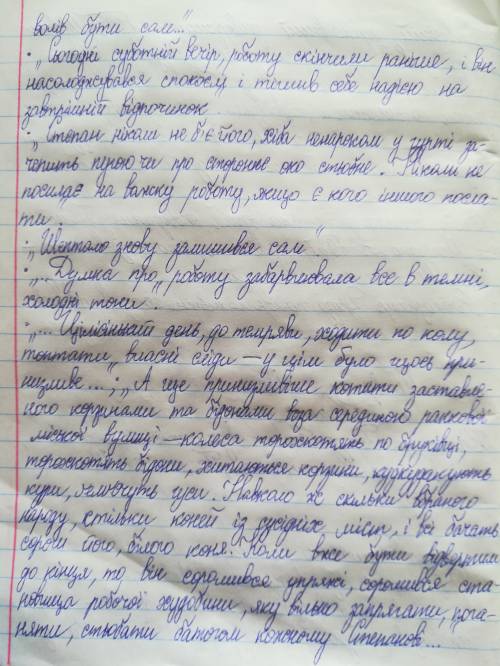 волів бути сам..."
• „Сьогодні суботній вечір, роботу скінчили раніше, і він
насолоджувався спокоєм і тішив себе надією на
завтрашній відпочинок
• „Степан ніколи не б'є його, хіба ненароком у гурті за-
чепить пугою чи про стороннє око стьобне. Ніколи не
посилає на важку роботу, якщо є кого іншого посла-
ти".
• „Шептало знову залишився сам"
• „...Думка про роботу забарвлювала все в темні,
холодні тони".
• „... Цілісінький день, до темряви, ходити по колу,
топтати власні сліди — у цім було щось при-
низливе...; „А ще принизливіше котити заставле-
ного корзинами та бідонами воза серединою ранкової
міської вулиці — колеса торохкотять по бруківці,
торохкотять бідони, хитаються корзини, кудкудакують
кури, ґелґочуть гуси. Навколо ж скільки
народу, стільки коней із сусідніх місць, і всі бачать
сором його, білого коня. Коли вже бути відвертим
до кінця, то він соромився упряжі, соромився ста-
новища робочої худобини, яку вільно запрягати, пога-
няти, стьобати батогом кожному Степанові..."